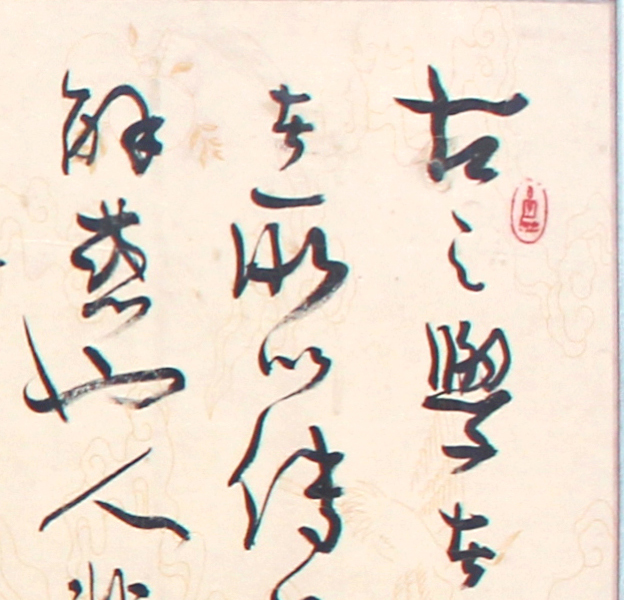 古之學者
者所以傳
解惑也人非